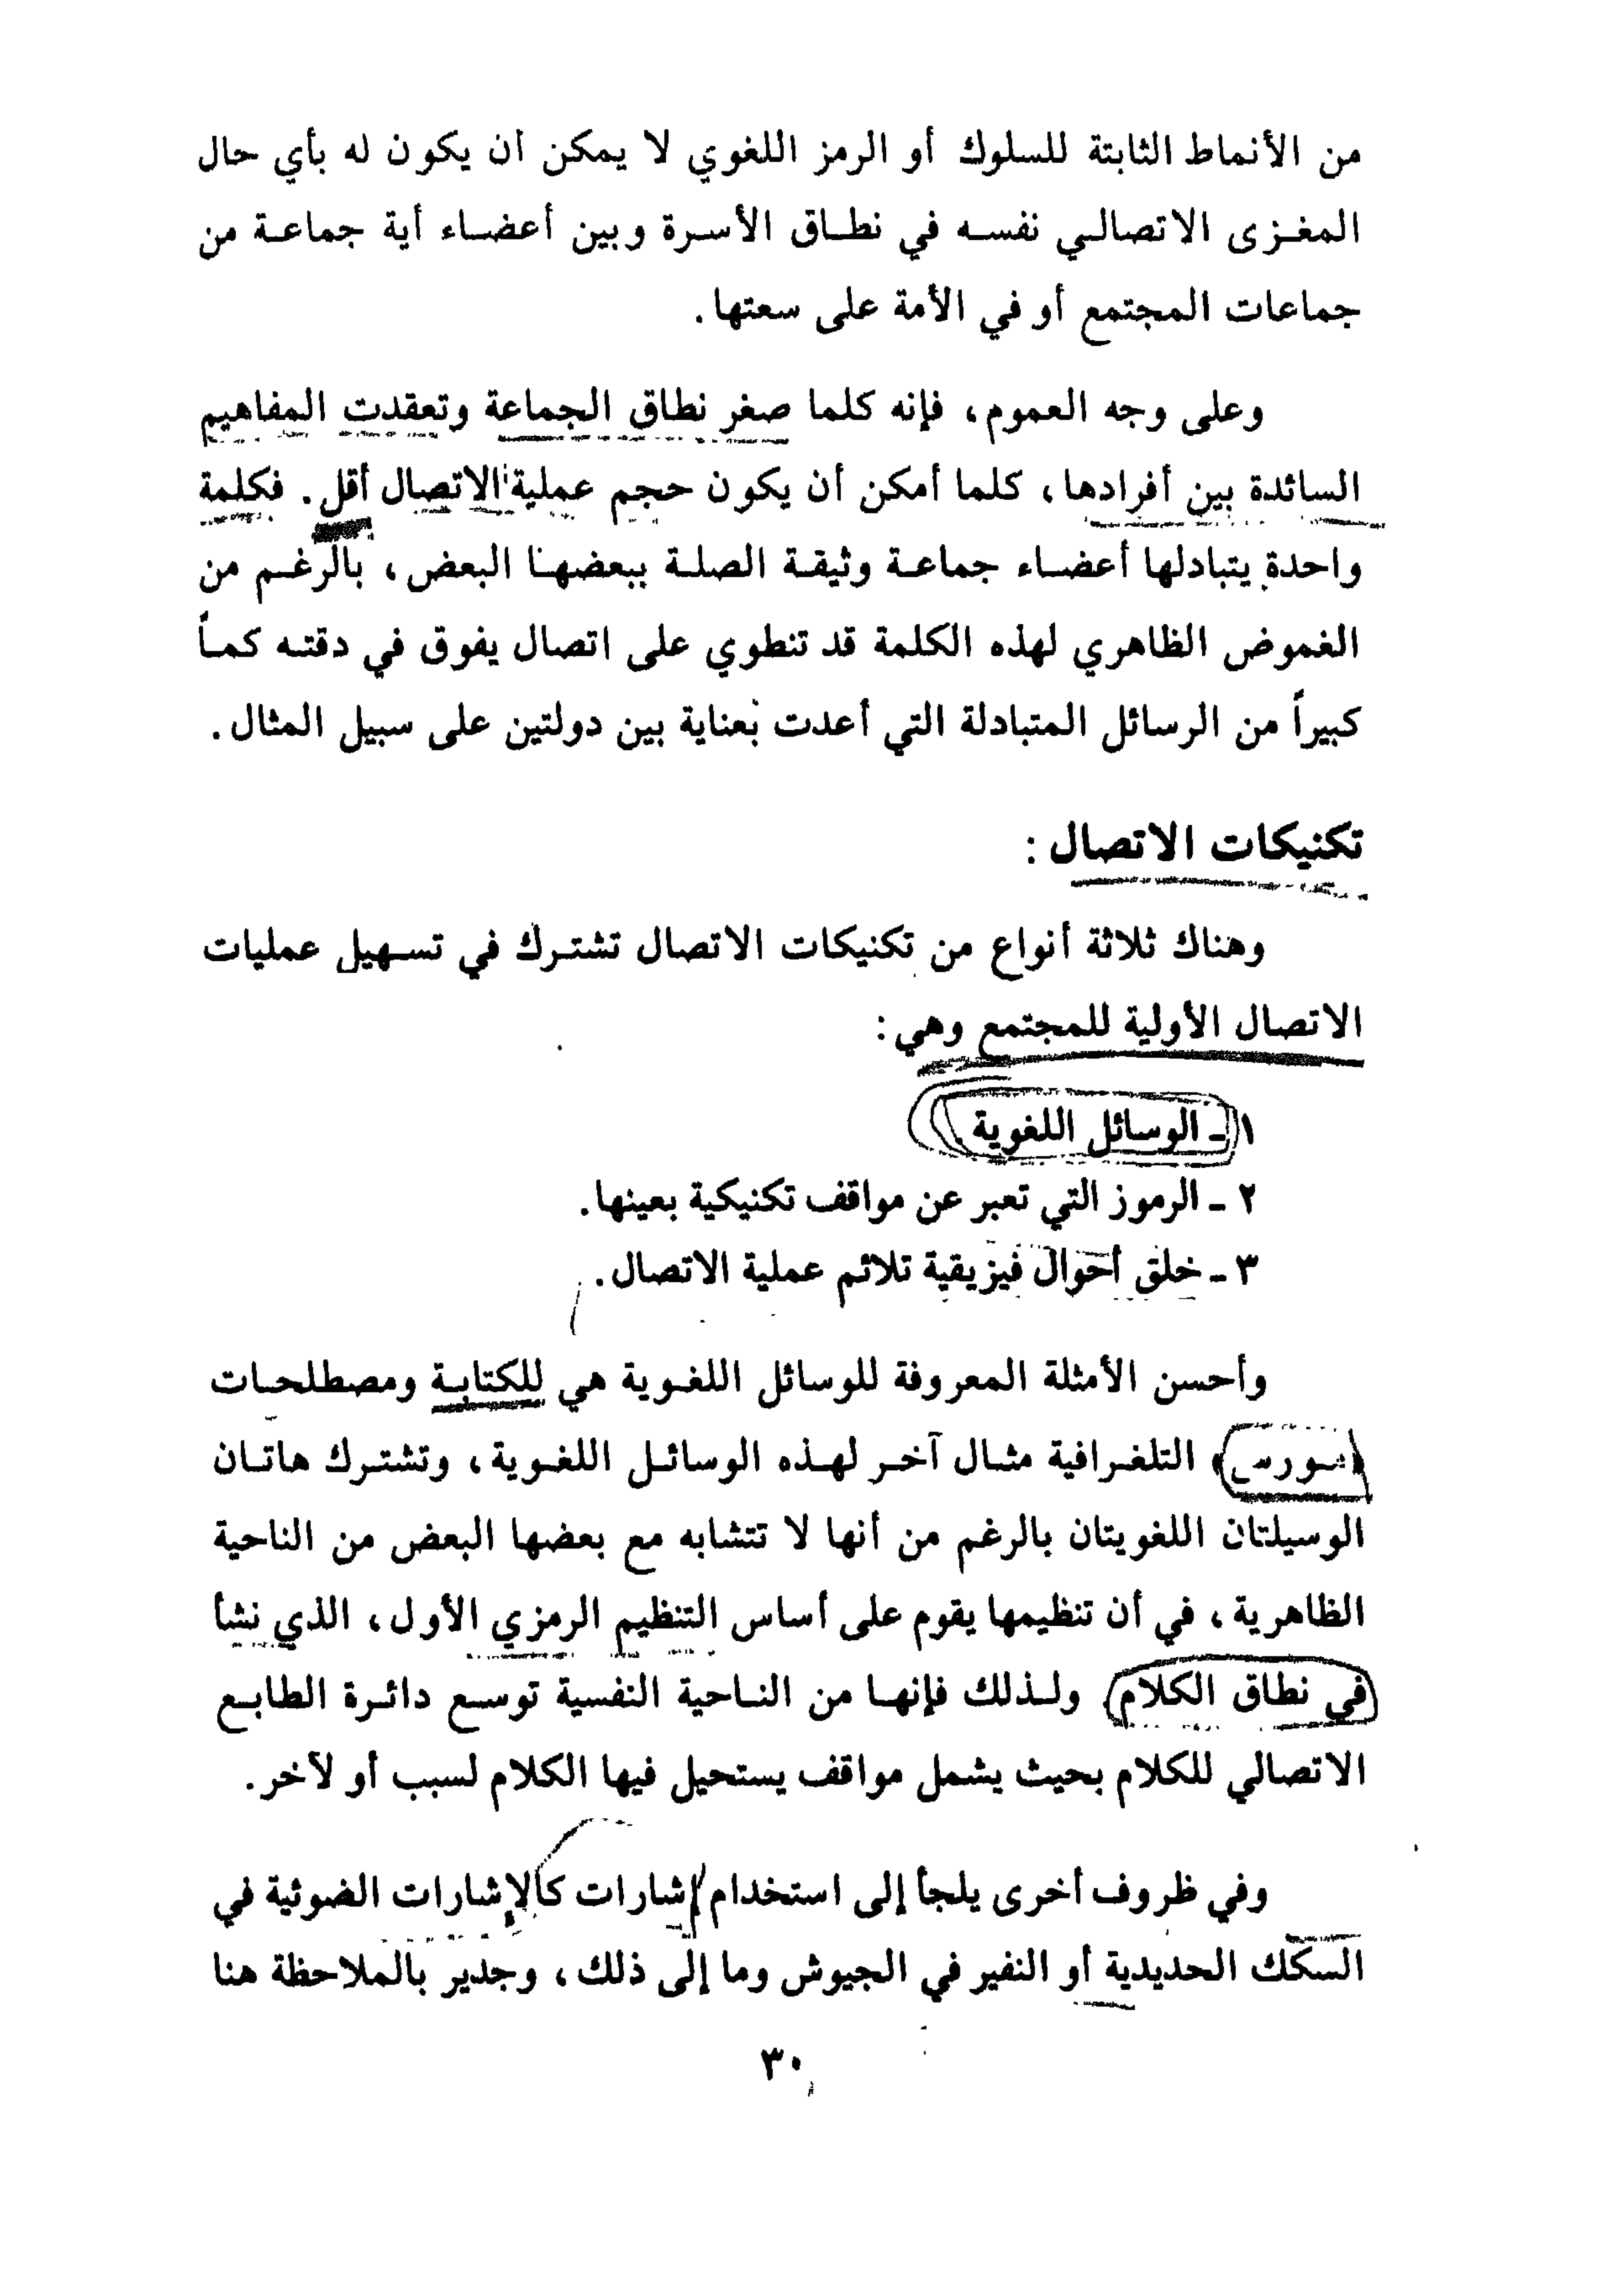 من الأنماط الثابتة للسلوك أو الرمز اللغوي لا يمكن ان يكون له بأي حال
المغزى الاتصالي نفسه في نطاق الأسرة وبين أعضاء أية جماعة من
جماعات المجتمع أو في الأمة على سعتها.
وعلى وجه العموم، فإنه كلما صغر نطاق الجماعة وتعقدت المفاهيم
السائدة بين أفرادها، كلما أمكن أن يكون حجم عملية الاتصال أقل. فكلمة
واحدة يتبادلها أعضاء جماعة وثيقة الصلة ببعضها البعض، بالرغم من
الغموض الظاهري لهذه الكلمة قد تنطوي على اتصال يفوق في دقته كماً
كبيراً من الرسائل المتبادلة التي أعدت بعناية بين دولتين على سبيل المثال.
تكنيكات الاتصال :
وهناك ثلاثة أنواع من تكنيكات الاتصال تشترك في تسهيل عمليات
الاتصال الأولية للمجتمع وهي :
١ - الوسائل اللغوية
٢ - الرموز التي تعبر عن مواقف تكنيكية بعينها.
٣ - خلق أحوال فيزيقية تلائم عملية الاتصال.
وأحسن الأمثلة المعروفة للوسائل اللغوية هي للكتابة ومصطلحات
«مورس» التلغرافية مثال آخر لهذه الوسائل اللغوية، وتشترك هاتان
الوسيلتان اللغويتان بالرغم من أنها لا تتشابه مع بعضها البعض من الناحية
الظاهرية، في أن تنظيمها يقوم على أساس التنظيم الرمزي الأول، الذي نشأ
في نطاق الكلام ولذلك فإنها من الناحية النفسية توسع دائرة الطابع
الاتصالي للكلام بحيث يشمل مواقف يستحيل فيها الكلام لسبب أو لآخر.
وفي ظروف أخرى يلجأ إلى استخدام إشارات كالإشارات الضوئية في
السكك الحديدية أو النفير في الجيوش وما إلى ذلك، وجدير بالملاحظة هنا
٣٠